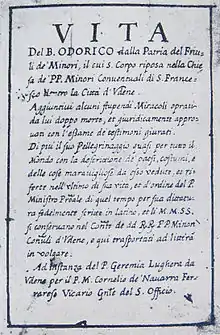 VITA
Del B. ODORICO dalla Patria del Friu
li de Minori, il cui S. Corpo riposa nella Chie
sa de' PP. Minori Conventuali di S. France-
sco entro la Città d'Udene.
Aggiuntivi alcuni stupendi Miracoli oprati
da lui doppo morte, et giuridicamente appro
uati con l'essame de testimoni giurati.
Di più il suo Pellegrinaggio quasi per tutto il
Mondo con la descrizione de' paesi, costumi, e
delle cose marauigliose da esso vedute, et ri
ferte nell'ultimo di sua vita, et d'ordine del P.
Ministro Prãle di quel tempo per sua dittatura
fedelmente scritte in latino, et li M.M.S.S.
si conseruano nel Conto de dd RR PP Minori
Conuli d'Udene, e qui trasportati ad litterã
in volgare.
Ad instanza del P. Geremia Lughera da
Udene per il P. M. Cornelio de' Nauarra Fer
rarese Vicario Gnle del S. Officio.